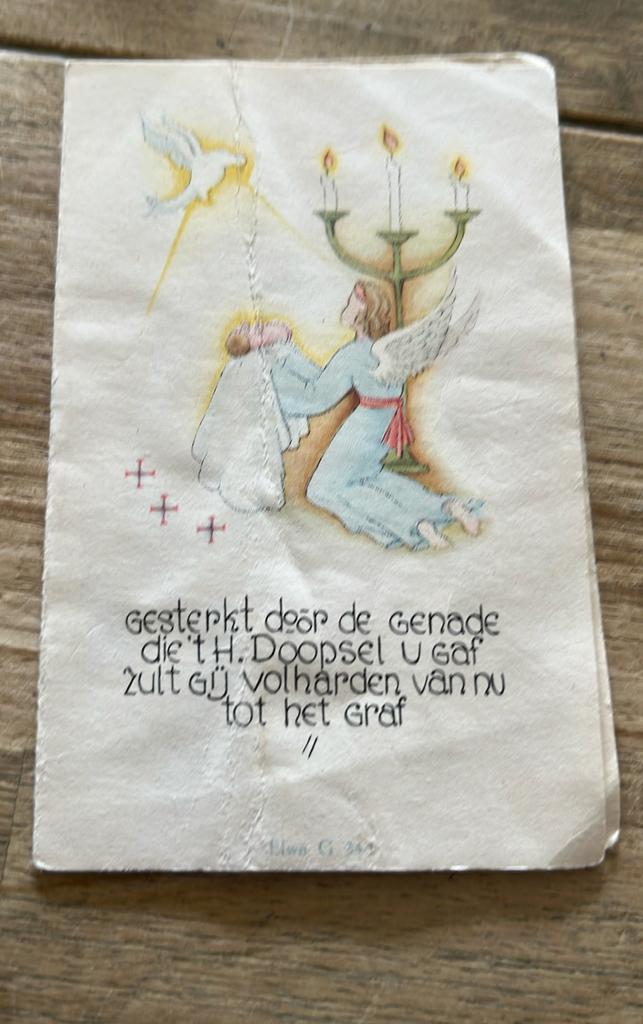 Gesterkt door de Genade
die 't H. Doopsel u Gaf
zult Gij volharden van nu
tot het Graf
//
G